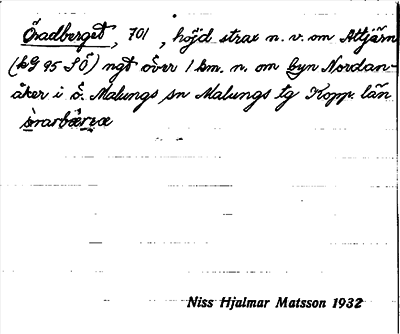 Öradberget, 701, höjd strax n. v. om Attjärn
(kG 95 SÖ) ngt över 1 km. n. om byn Nordan-
åker i Ö. Malungs sn Malungs tg Kopp. län
Niss Hjalmar Matsson 1932